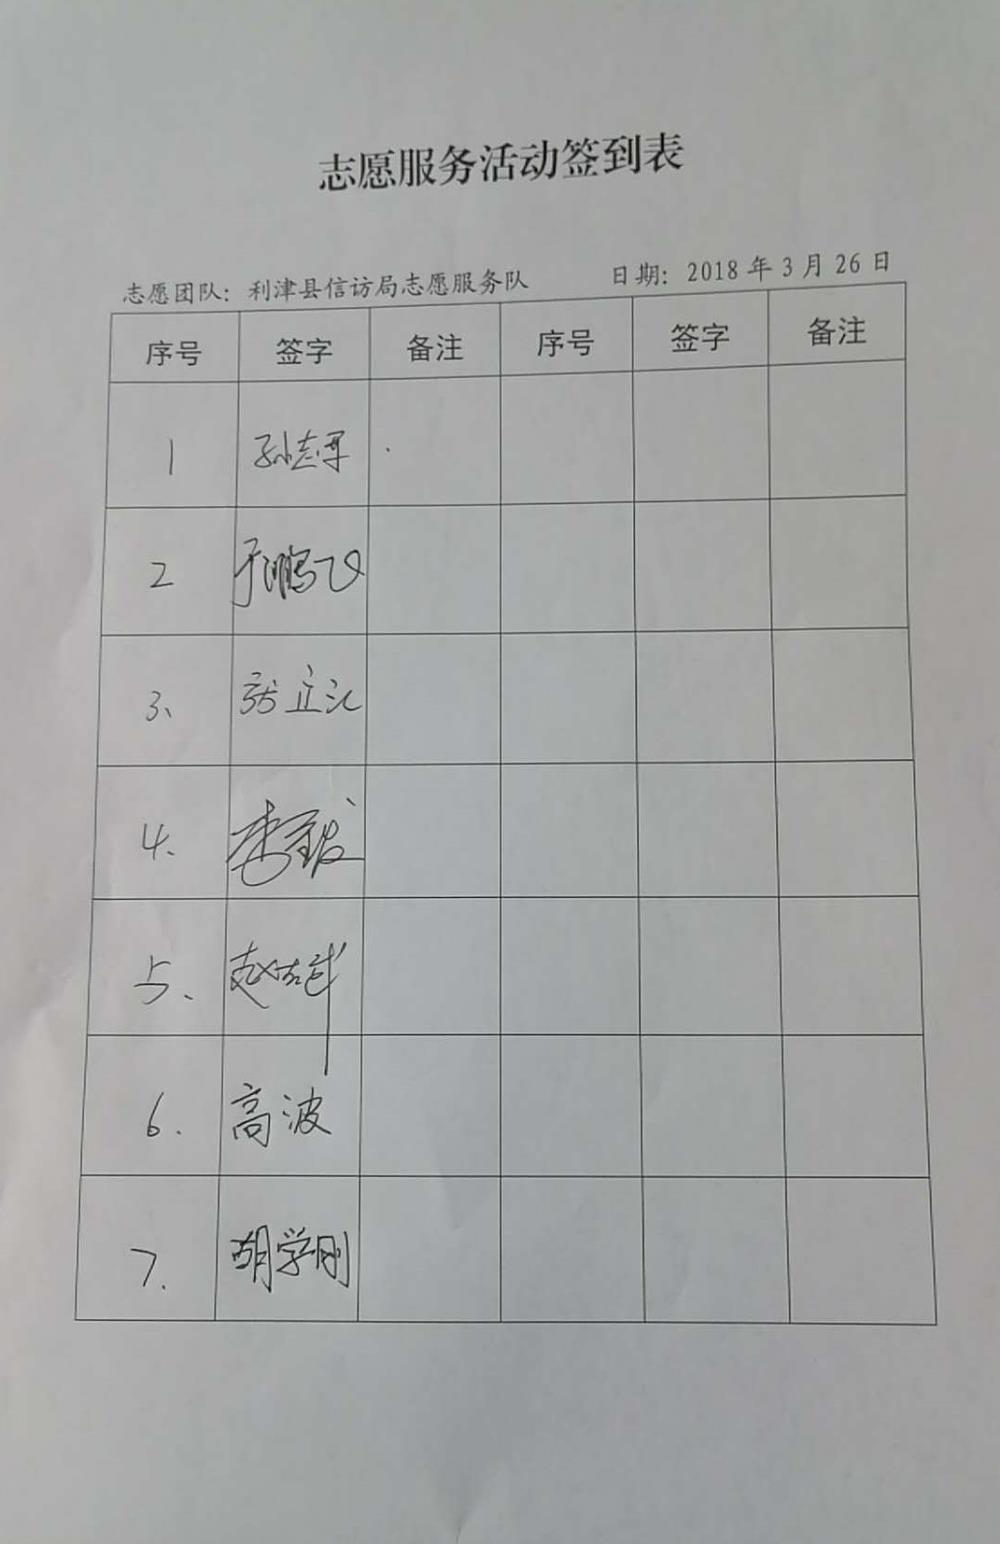 志愿服务活动签到表
志愿团队：利津县信访局志愿服务队 日期：2018年3月26日
序号 签字 备注 序号 签字 备注
1 孙志军
2 于鹏飞
3、 张立江
4、 李
5、 赵
6. 高波
7. 胡学刚